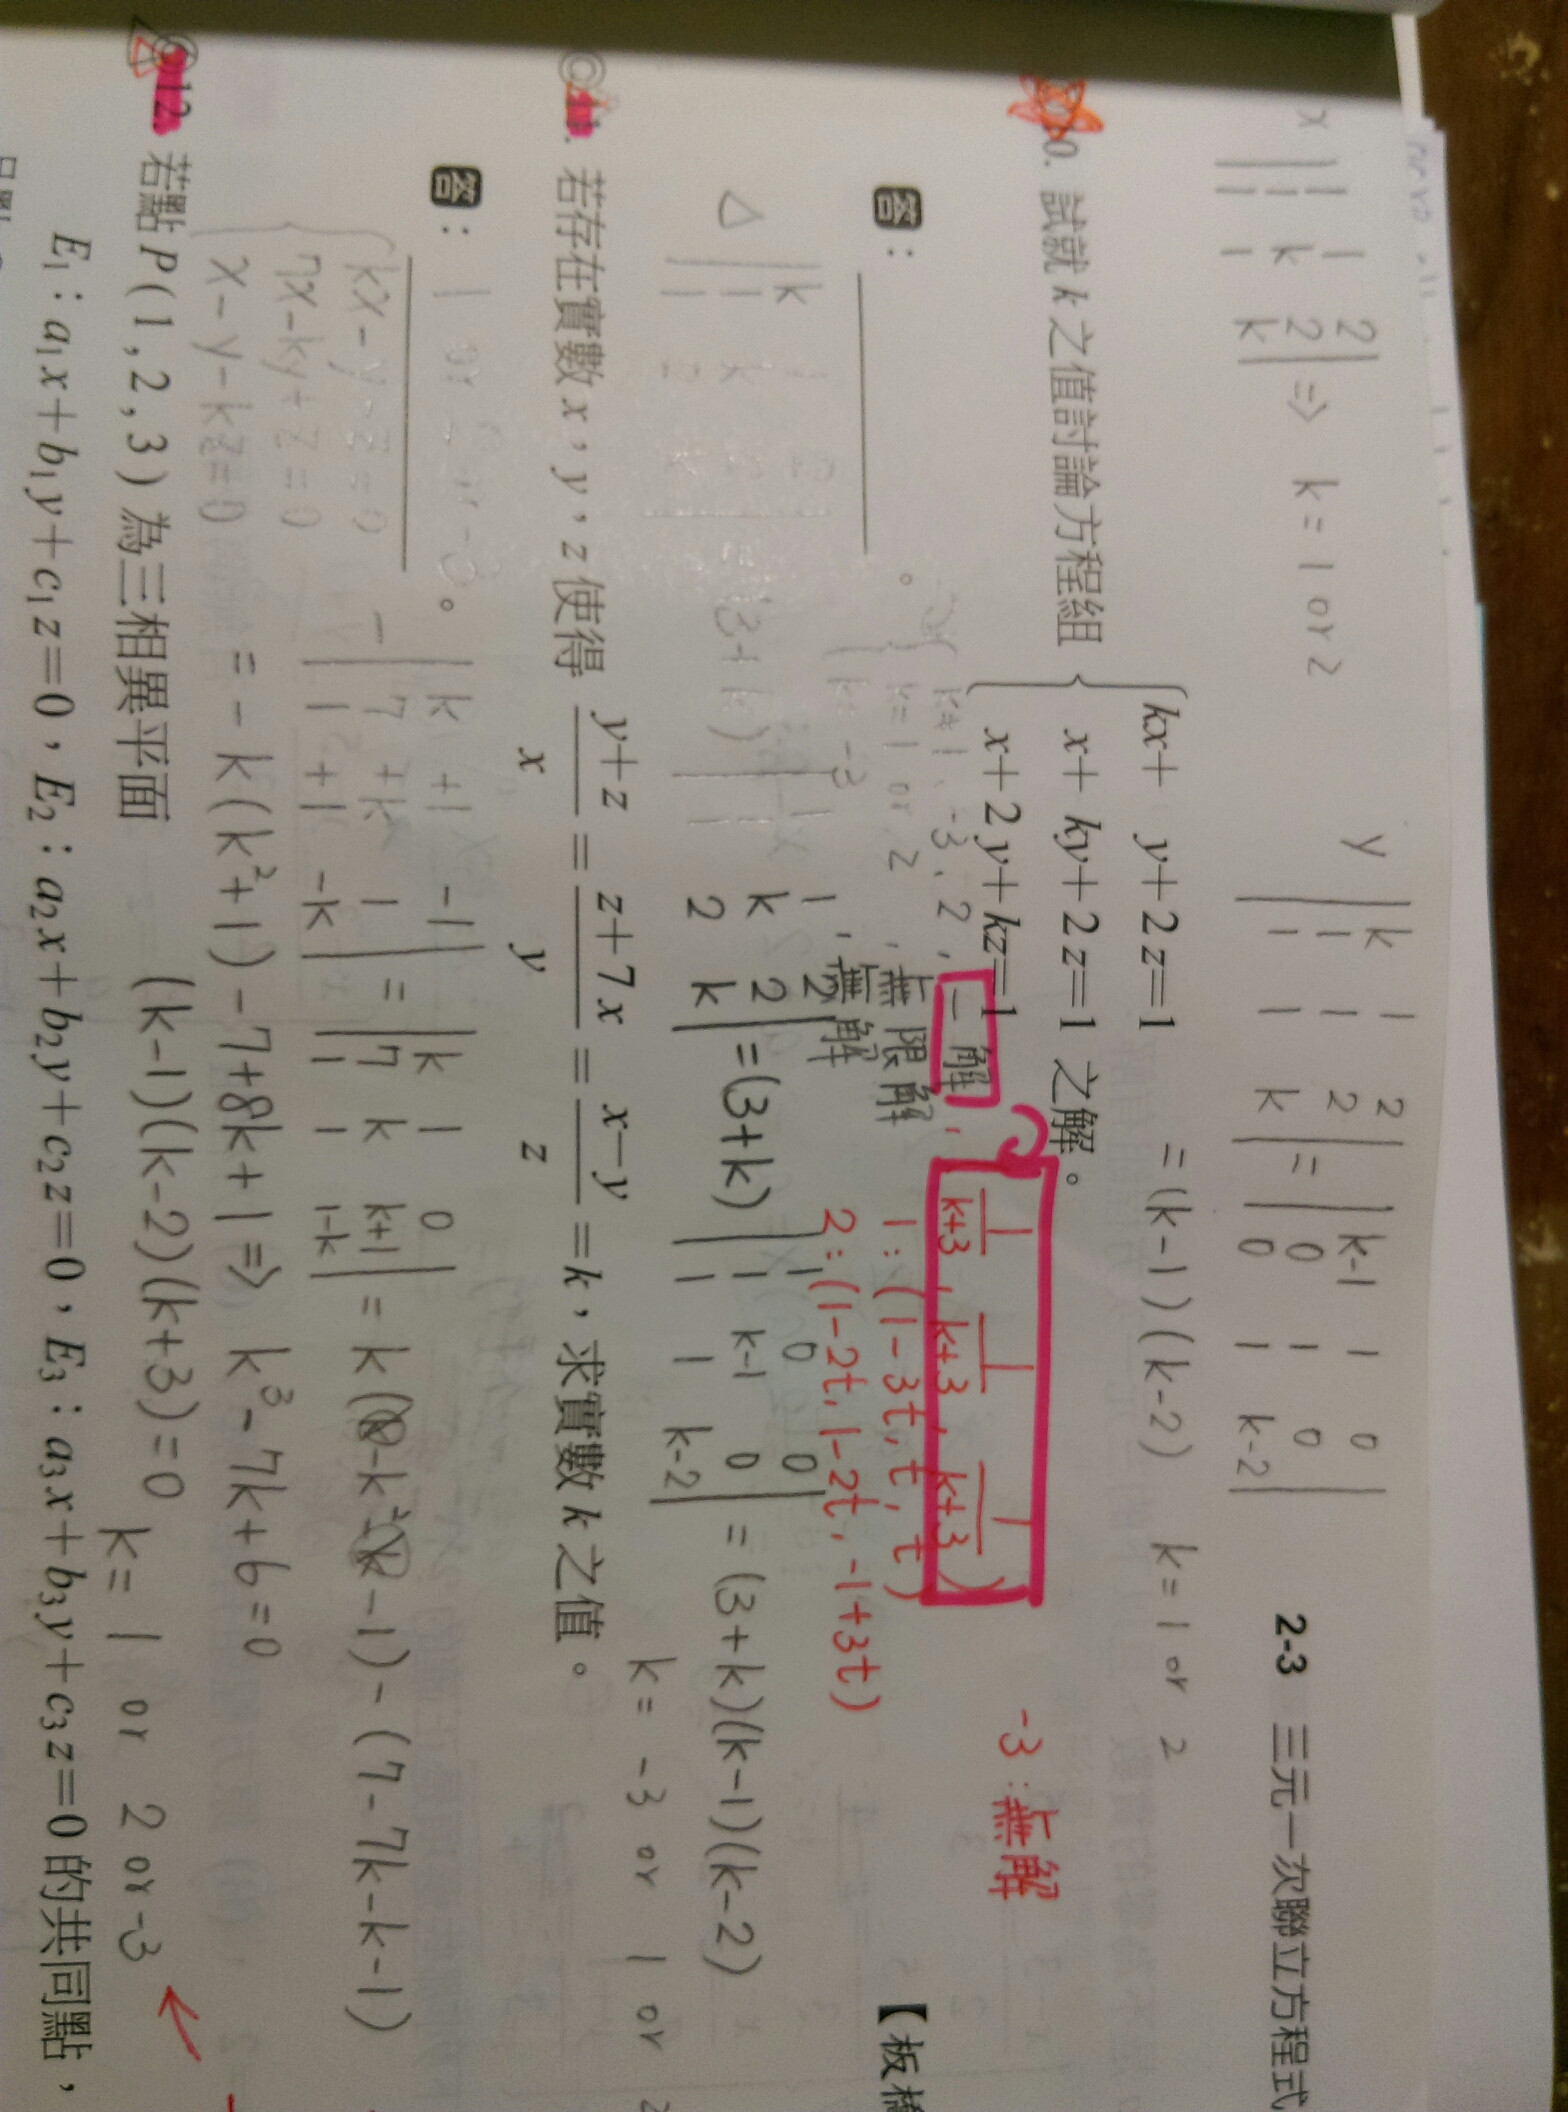 2-3 三元一次聯立方程式
x | 1 1 2
1 k 2
1 1 k | => k = 1 or 2
y | k 1 2
1 1 2
1 1 k | = | k-1 1 0
0 1 0
0 1 k-2 |
= (k-1)(k-2) k = 1 or 2
10. 試就 k 之值討論方程組 { kx+ y+2z=1
x+ky+2z=1 之解。
x+2y+kz=1
-3:無解
答:
k≠1、-3、2,一解, (1/k+3, 1/k+3, 1/k+3)
k=1 or 2,無限解 1:(1-3t, t, t)
k=-3,無解 2:(1-2t, 1-2t, -1+3t)
【板橋
△ | k 1 2
1 k 2
1 2 k | = (3+k) | 1 0 0
1 k-1 0
1 1 k-2 | = (3+k)(k-1)(k-2)
k = -3 or 1 or 2
11. 若存在實數 x,y,z 使得 y+z/x = z+7x/y = x-y/z = k,求實數 k 之值。
答: 1 or 2 or -3 。
{ kx-y-z=0
7x-ky+z=0
x-y-kz=0
- | k +1 -1
7 +k 1
1 +1 -k | = | k 1 0
7 k k+1
1 1 1-k | = k(k-k²-k-1)-(7-7k-k-1)
= -k(k²+1)-7+8k+1 => k³-7k+6=0
(k-1)(k-2)(k+3)=0 k= 1 or 2 or -3
12. 若點 P(1,2,3) 為三相異平面
E₁:a₁x+b₁y+c₁z=0,E₂:a₂x+b₂y+c₂z=0,E₃:a₃x+b₃y+c₃z=0 的共同點,